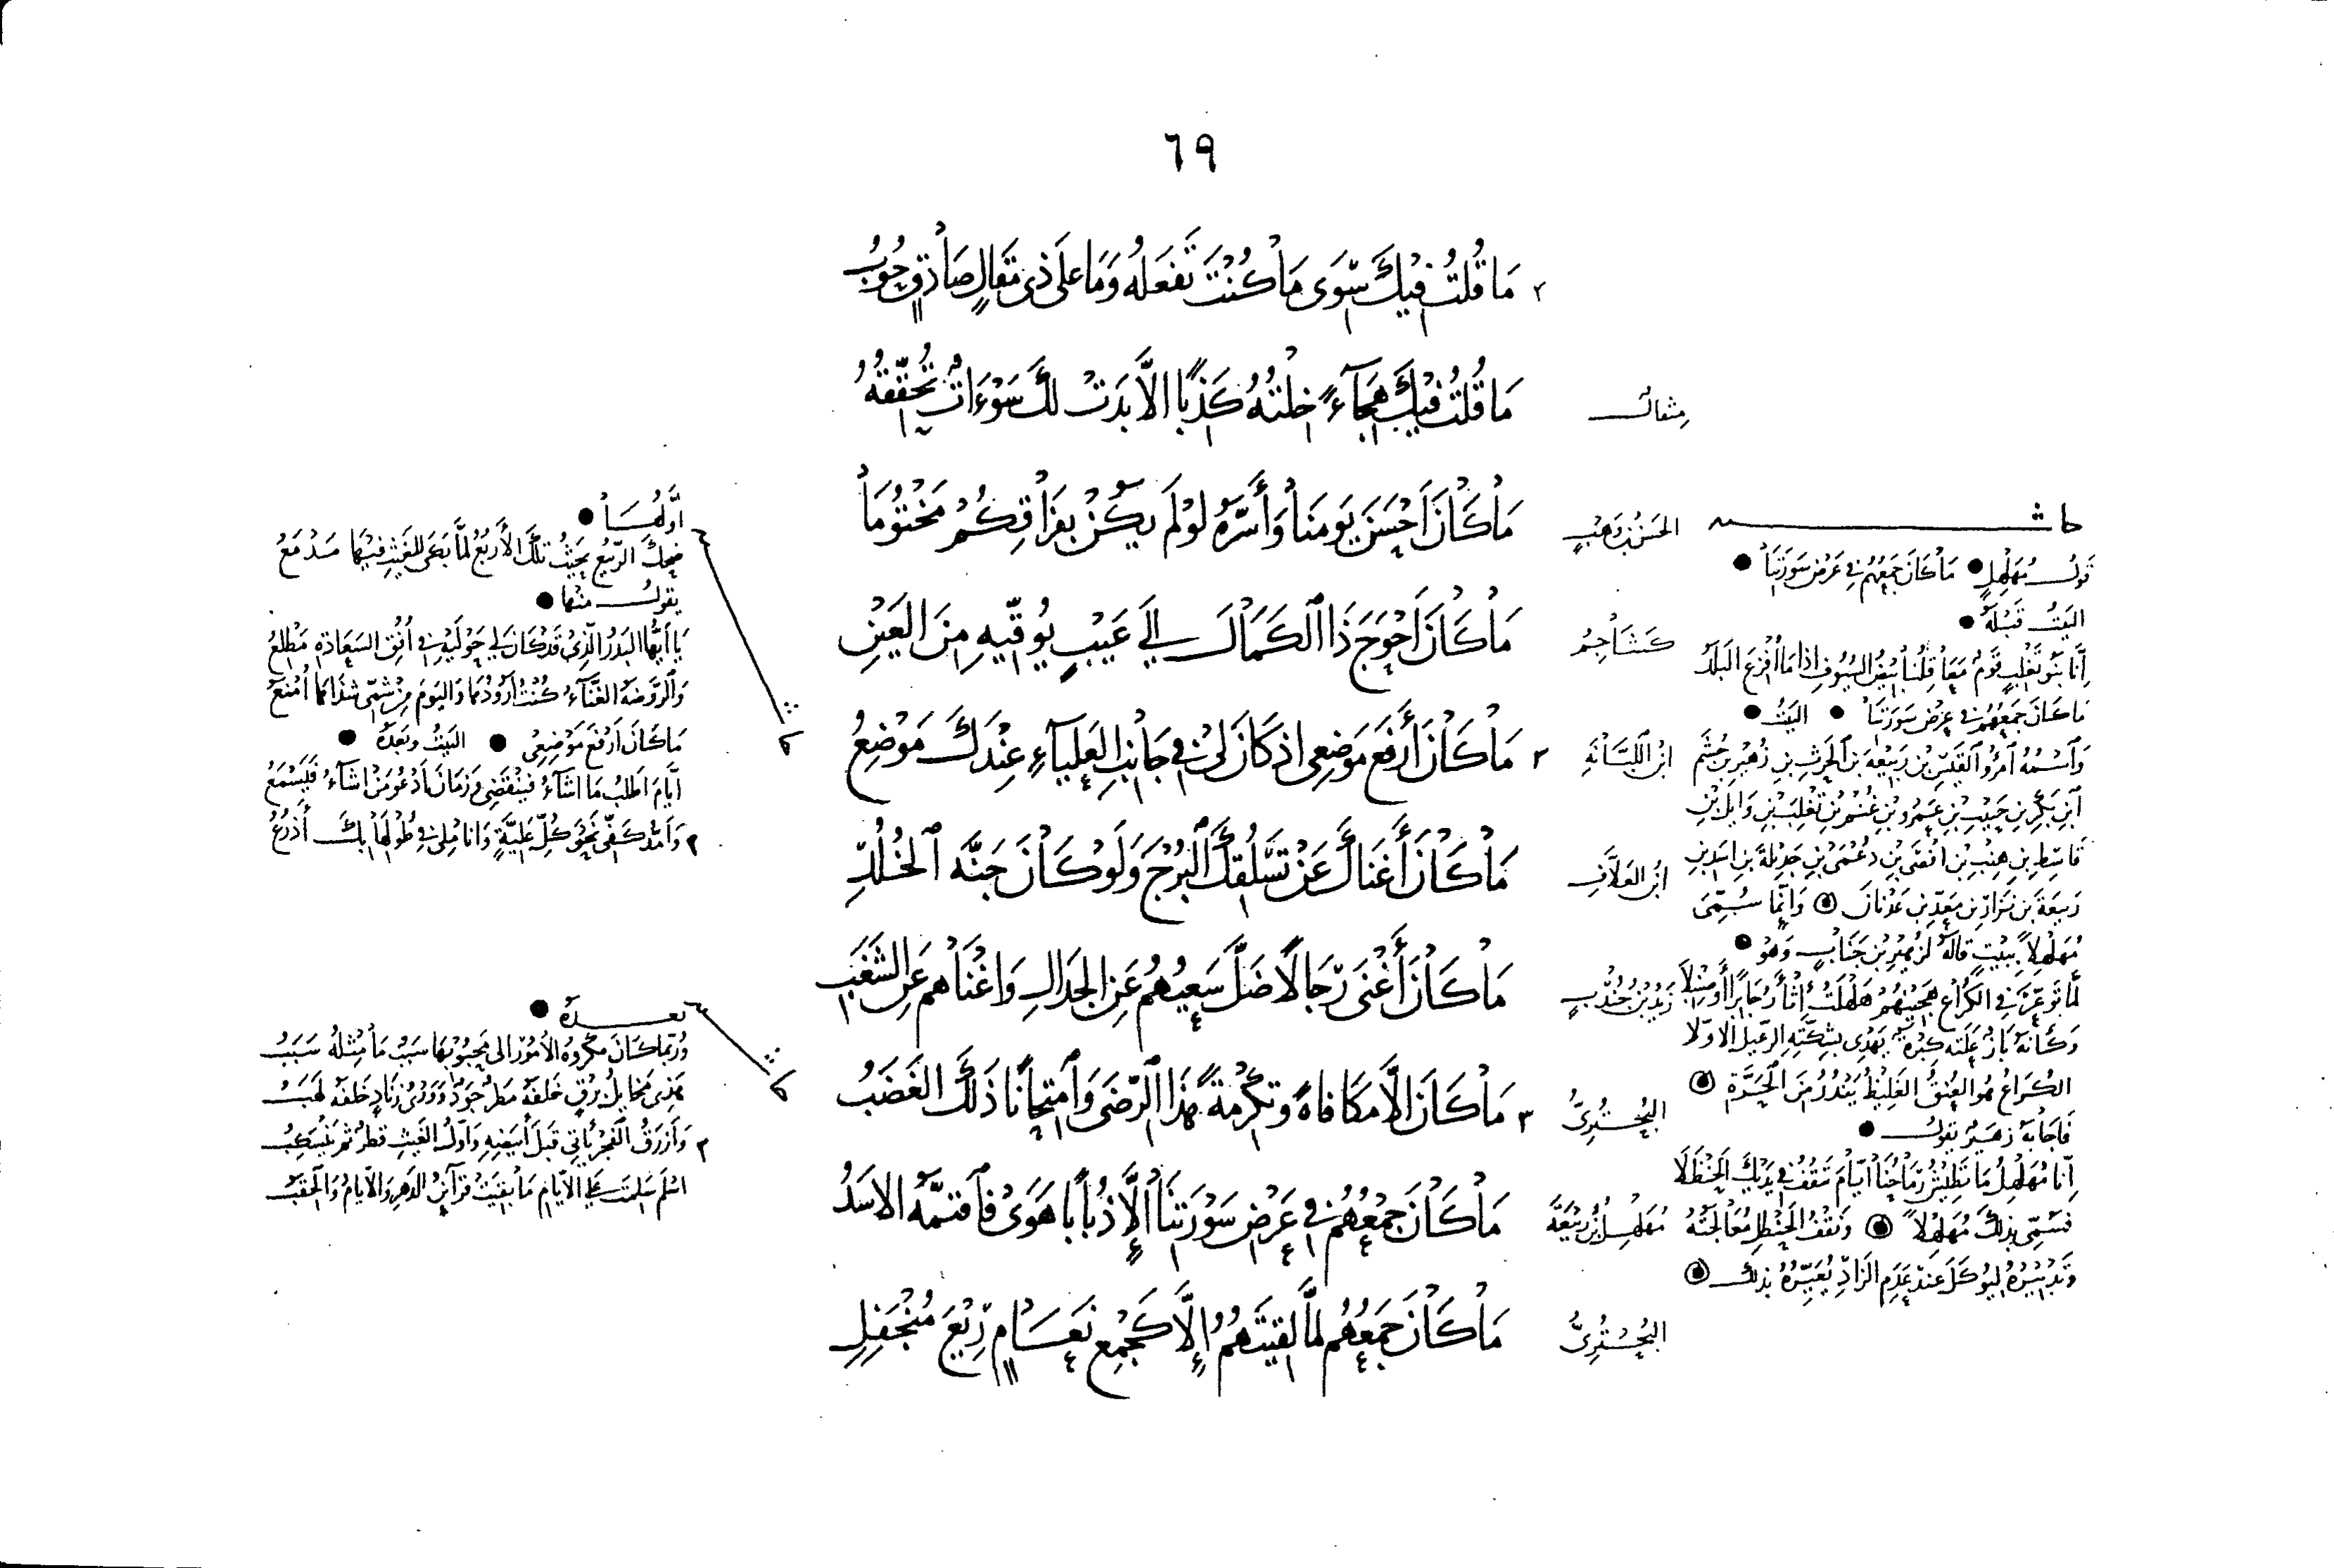 ٦٩
٢ مَا قُلتُ فيْكَ سِّوَى مَا كُنْتَ تَفعَلهُ وَمَا على ذى مَقالٍ صَادقٍ حُوبُ
مِثقال
مَا قُلتُ فيْكَ هِجَآءً خلْتهُ كَذبًا الاَّ بدَتْ لكَ سَوْءَاتٌ تُحَقّقهُ
الحَسَنُ بن وَهبٍ
مَا كَانَ أحْسَنَ يَومنَا وَأسَرَّهُ لوْلمَ يكُنْ بفرَاقِكُمْ مَخْتوُمَا
كَشَاجِمُ
مَا كَانَ أحْوَجَ ذَا الكَمَال الَى عَيبٍ يُوَقّيهِ مِنَ العَينِ
ابن اللبَّانَةِ
٢ مَا كَانَ أرفَعَ مَوضِعِى اذ كَانَ لىْ فى جَانبِ العَليآءِ عِنْدَكَ مَوْضِعُ
ابنُ العَلاَّفِ
مَا كَانَ أغنَاكَ عَنْ تسَلُّقكَ البُرْجَ وَلَوْ كَانَ جَنّةَ الخُلْدِ
زَيدُ بْنُ جُنْدُبٍ
مَا كَانَ أغْنَى رّجَالاً ضَلَّ سَعيُهُم عَنِ الجدَالِ وَاغْنَاهُم عَنِ الشَغَبِ
البُحْتُرِىُّ
٣ مَا كَانَ الاَّ مكَافاهً وَتكْرمةً هَذَا الرّضَى وَامتِحانًا ذَلكَ الغَضَبُ
مُهَلهِلُ بْنُ رَبيْعَةَ
مَا كَانَ جَمْعُهُمْ فى عَرْضِ سَوْرَتنَا إلاَّ ذُبابًا هَوَىْ فَاقتمَّهُ الاسَدُ
البُحْتُرِىُّ
مَا كَانَ جَمْعُهُم لمَّا لقيتَهُمُ إلَّا كَجَمْعِ نَعَامٍ رِيْعَ مُنْجَفِلِ
حاشية
قولُ مُهَلهِلٍ ● مَا كَانَ جَمعُهُم فى عَرْضِ سَورَتنَا ●
البَيتُ قَبْلَهُ ●
إنَّا بَنُو تَغْلبٍ قَومٌ مَعَاقِلُنا بيْضُ السُّيُوفِ اذا مَا أفْزعَ البَلَدُ
مَا كَانَ جَمعُهُمُ فى عَرْضِ سَورَتنَا ● البَيْتُ ●
وَاسْمُهُ امرُؤ القَيسِ بن رَبيْعَةَ بنِ الحَرثِ بنِ زُهَيْرِ بن جُشَمِ
ابنِ بَكرِ بنِ حَبيبِ بْنِ عَمرو بْنِ غُنْمِ بْنِ تَغْلِبَ بْنِ وَايلِ بْنِ
قَاسِطِ بن هِنبِ بْن افْصَى بْنِ دُعْمِىّ بْنِ جَدِيْلةَ بنِ اسَدِ بنِ
رَبيعَةَ بنِ نزَارِ بن مَعَدِّ بن عَدنانَ وَانَّما سُمّىَ
مُهَلهِلاً ببَيْتٍ قالهُ لزُهَيرِ بْنِ جَنَابٍ وَهو ●
لمَّا تَوعَّرَ فى الكُرَاعِ هَجينهُمْ هَلهَلتُ أثأرُ جَابرًا أو صِنْبلاَ
وَكَأنّهُ بَازٌ عَلَتْهُ كَبْرَةٌ يَهْدِى بشِكَّتهِ الرّعيلَ الاوّلا
الكُرَاعُ هُو العُنُقُ الغَلِيْظُ يَنْدُرُ مِنَ الحَرَّةِ
فَاجَابهُ زهَيرٌ يَقولُ ●
إنَّا مُهَلهِلُ مَا تَطِيْشُ رمَاحُنَا أيَّامَ تَنقُفُ فى يدَيْكَ الحَنظَلاَ
فسُمّى بذلكَ مُهَلهِلاً وَنقْفُ الحَنْظلِ مُعَالجَتُهُ
وَتَدْبيْرُهُ ليُؤكَلَ عندَ عَدَمِ الزَادِ يُعَيّرُهُ بذلكَ
أوَّلُهَا ●
ضحِكَ الرّبيْعُ بحَيْثُ تلكَ الأربُعُ لمَّا بَكى للغَيْثِ فيْهَا مَدْمَعُ
يقولُ منهَا ●
يَا أيّها البَدرُ الّذِىْ قَدكَانَ لى حَوْليْهِ فى أفُقِ السَعَادَةِ مَطْلعُ
وَالرّوضَةُ الغَنّآءُ كُنتُ أرُوْدُهَا وَاليَومَ مِنْ شَمّى شذَاهَا أمْنَعُ
مَا كَانَ أرْفَعَ مَوْضِعِى ● البَيتُ وَبَعدَهُ ●
ايَّامَ اطلبُ مَا اشَآءُ فيَنْقَضِى وَزمَانَ ادعُو مَنْ اشَآءُ فَيَسْمَعُ
٢ وَامُدُّ كَفّى نَحوَ كُلِّ عَليَّةٍ وَانامِلىْ فى طُوْلهَا بكَ أَذرُعُ
بعدهُ ●
وُرُبَّما كَانَ مَكْرُوهُ الأمُوْرِ الى مَحبُوْبهَا سَبَبٌ مَا مِثلهُ سَبَبُ
هَذى مَخايلُ بَرْقٍ خَلفَهُ مَطرٌ جَودٌ وَوَرْىُ زِنَادٍ خَلفَهُ لهَبُ
٢ وَازرَقُ الفَجرِ يَاتى قَبلَ أبيَضهِ وَاوّلُ الغَيْثِ قطرٌ ثمَّ يَنْسَكِبُ
اسْلَم سَلمتَ على الايّامِ مَا بقيَتْ قرَآئنُ الدَهرِ وَالايّامُ وَالحقبُ